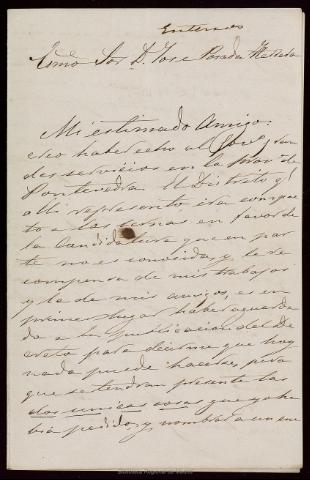 Enterado
Exmo Sor D. Jose Posada Herrera
Mi estimado Amigo:
creo haber echo al Gov.
des servicios en la prov. de
Pontevedra. El Distrito q.
alli represento, esta compac
to a las urnas en favor de
la candidatura que en par
te no es conocida, y la re
compensa de mis trabajos
y la de mis amigos, es en
primer lugar haber aguarda
do a la publicacion del De
creto para decirme que hoy
nada puede hacerse, pero
que se tendran presente las
dos unicas cosas que yo ha
bia pedido, y nombrar a un ene